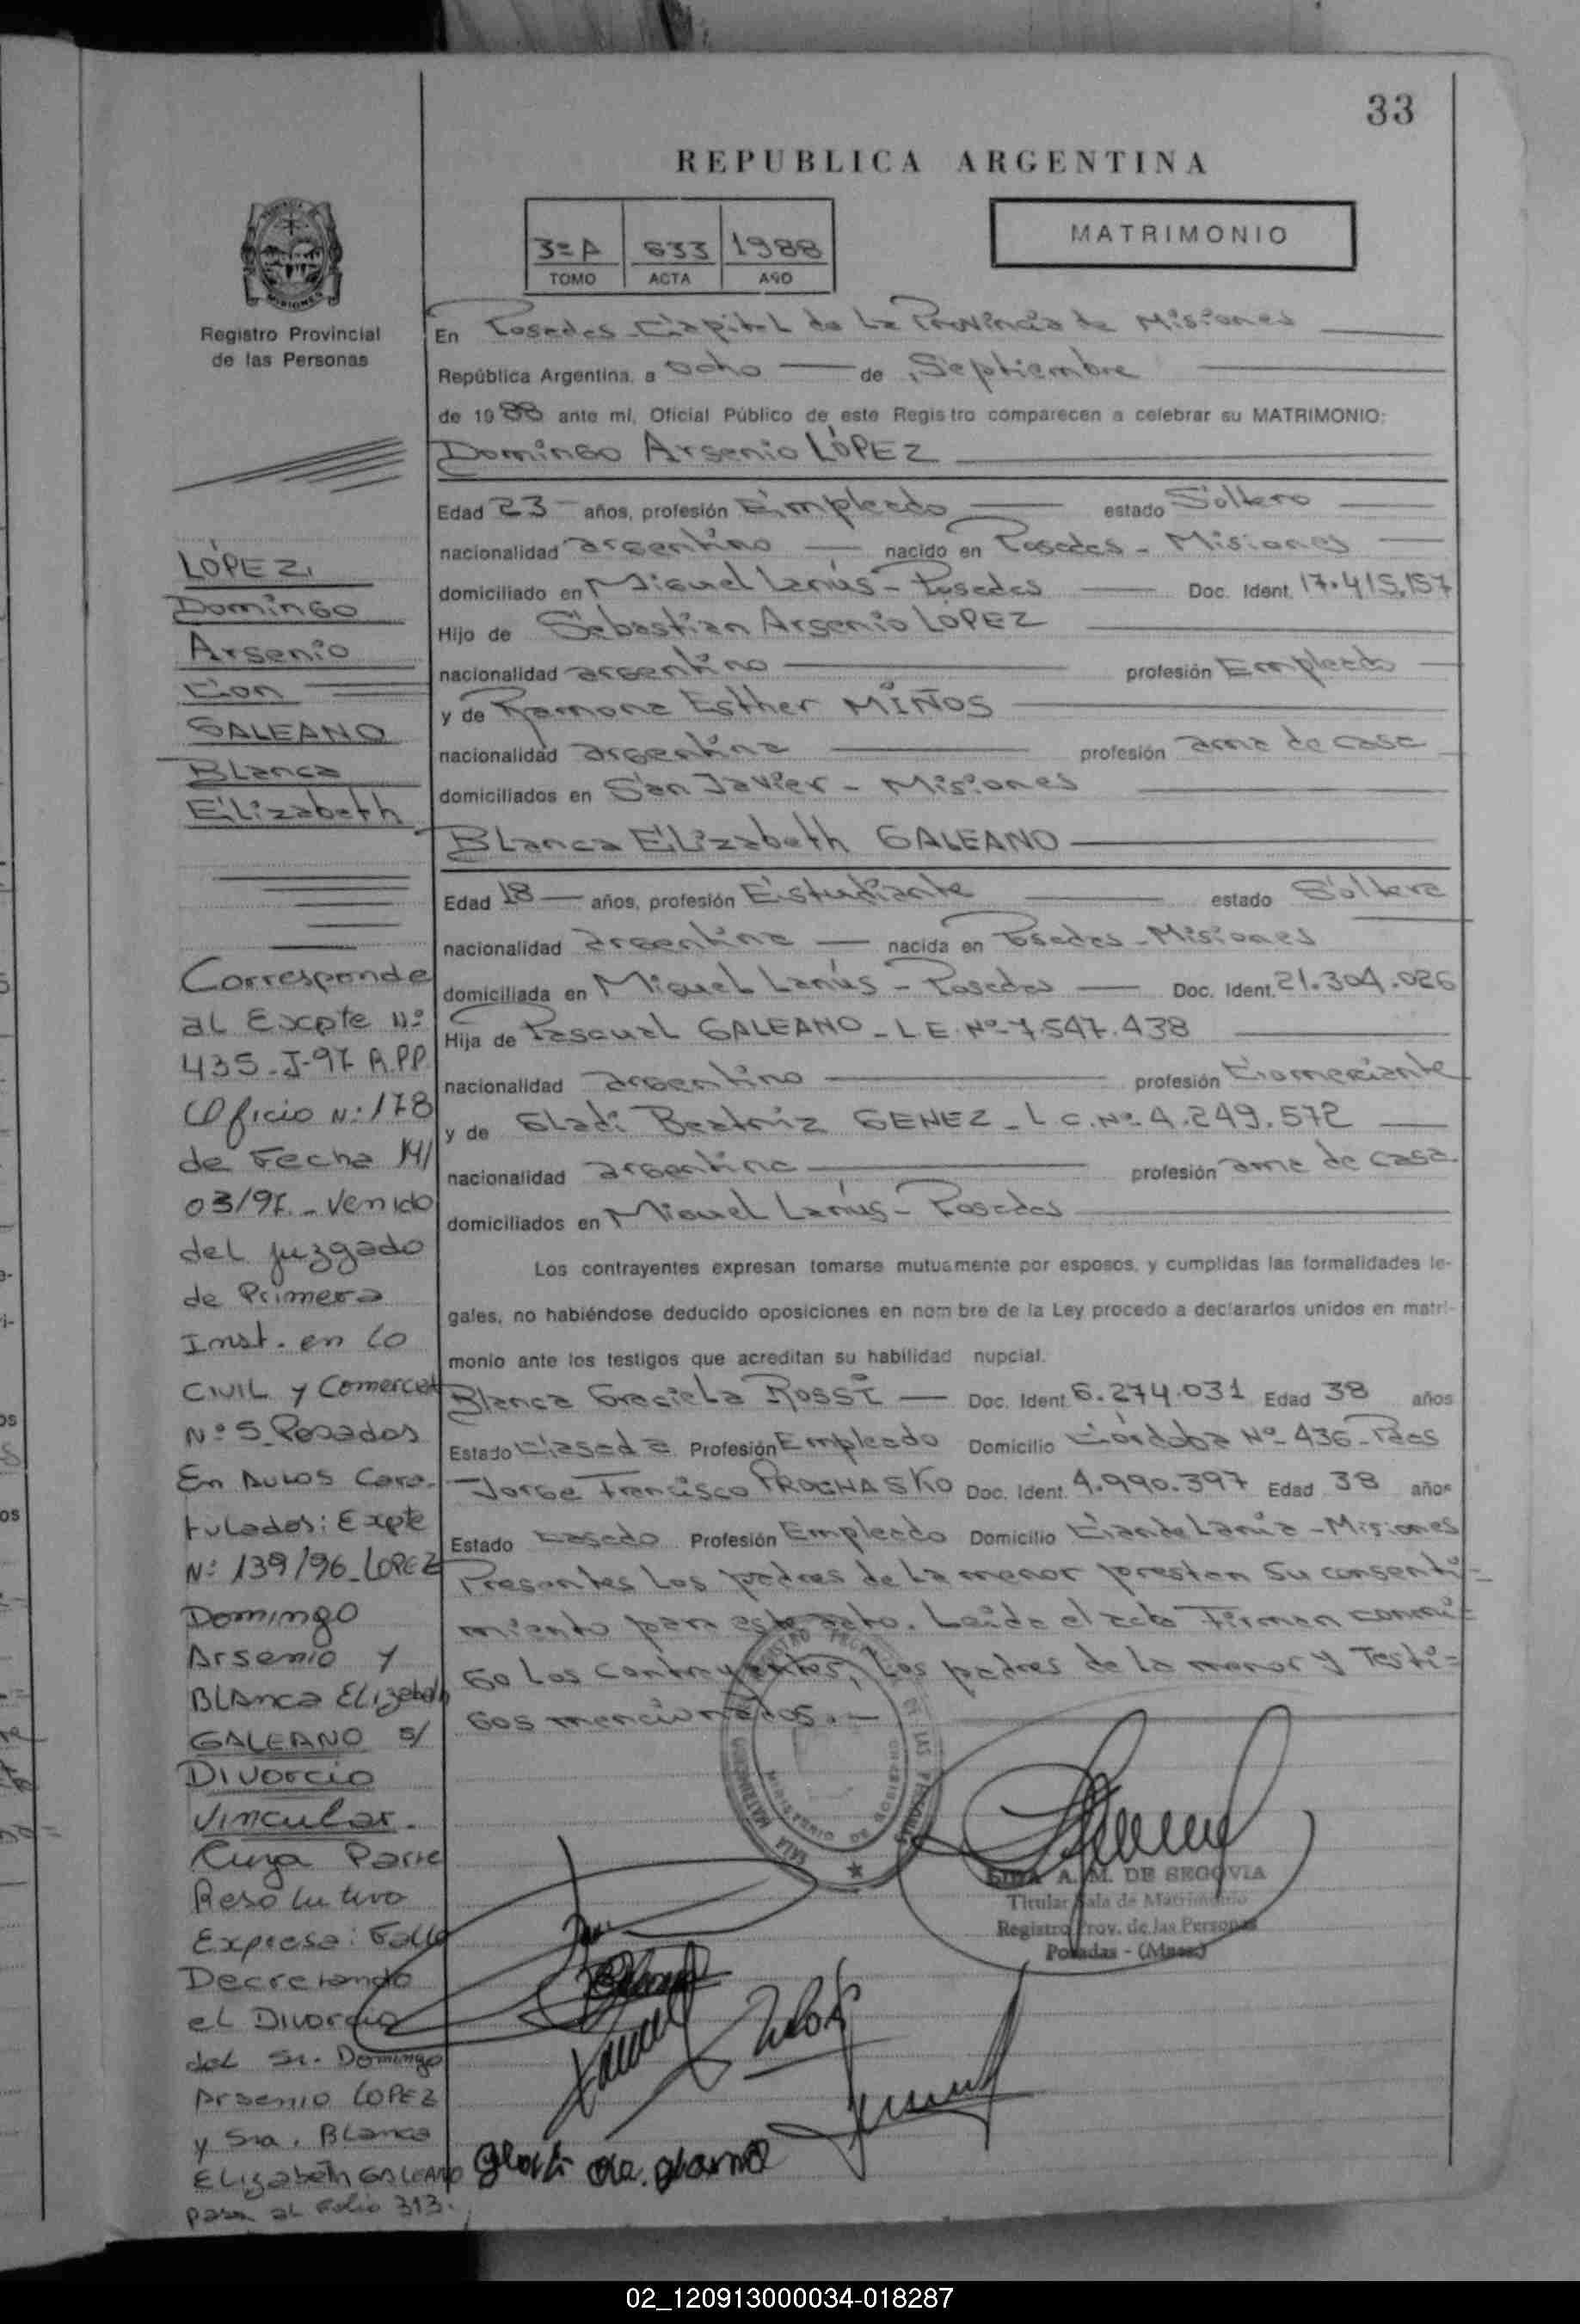 33
REPUBLICA ARGENTINA
3ºA 633 1988
TOMO ACTA AÑO
MATRIMONIO
Registro Provincial
de las Personas
En Posadas Capital de La Provincia de Misiones
República Argentina, a ocho de Septiembre
de 1988 ante mí, Oficial Público de este Registro comparecen a celebrar su MATRIMONIO:
Domingo Arsenio LÓPEZ
Edad 23 años, profesión Empleado estado Soltero
nacionalidad argentino nacido en Posadas - Misiones
domiciliado en Miguel Lanús - Posadas Doc. Ident. 17.415.157
Hijo de Sebastian Arsenio LOPEZ
nacionalidad argentino profesión Empleado
y de Ramona Esther MIÑOS
nacionalidad argentina profesión ama de casa
domiciliados en San Javier - Misiones
Blanca Elizabeth GALEANO
Edad 18 años, profesión Estudiante estado Soltera
nacionalidad argentina nacida en Posadas - Misiones
domiciliada en Miguel Lanús - Posadas Doc. Ident. 21.304.026
Hija de Pascual GALEANO - L E. Nº 7.547.438
nacionalidad argentino profesión Comerciante
y de Gladi Beatriz GENEZ - L C. Nº 4.249.572
nacionalidad argentina profesión ama de casa
domiciliados en Miguel Lanús - Posadas
Los contrayentes expresan tomarse mutuamente por esposos, y cumplidas las formalidades le-
gales, no habiéndose deducido oposiciones en nombre de la Ley procedo a declararlos unidos en matri-
monio ante los testigos que acreditan su habilidad nupcial.
Blanca Graciela ROSSI Doc. Ident. 6.274.031 Edad 38 años
Estado Casada Profesión Empleado Domicilio Córdoba Nº 436 - Pdas
Jorge Francisco PROCHASKO Doc. Ident. 4.990.397 Edad 38 años
Estado Casado Profesión Empleado Domicilio Candelaria - Misiones
Presentes Los padres de La menor prestan su consenti=
miento para este acto. Leida el acta Firman conmi=
go Los contrayentes, Los padres de la menor y Testi=
gos mencionados.-
LÓPEZ,
Domingo
Arsenio
Con
GALEANO
Blanca
Elizabeth
Corresponde
al Excpte Nº
435-J-97 R.P.P.
Oficio Nº 178
de Fecha 14/
03/97. - Venido
del juzgado
de Primera
Inst. en lo
CIVIL y Comercial
Nº 5 Posadas
En Autos Cara-
tulados: Expte
Nº 139/96 - LOPEZ
Domingo
Arsenio y
BLAnca Elizabeth
GALEANO s/
Divorcio
Vincular.
Cuya Parte
Resolutiva
Expresa: Fallo
Decretando
el Divorcio
del Sr. Domingo
Arsenio LOPEZ
y Sra. Blanca
Elizabeth GALEANO
pasa al Folio 313.
A. M. DE SEGOVIA
Titular Sala de Matrimonio
Registro Prov. de las Personas
Posadas - (Mnes)
02_120913000034-018287